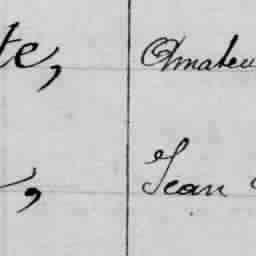 te, Amateu
, Jean